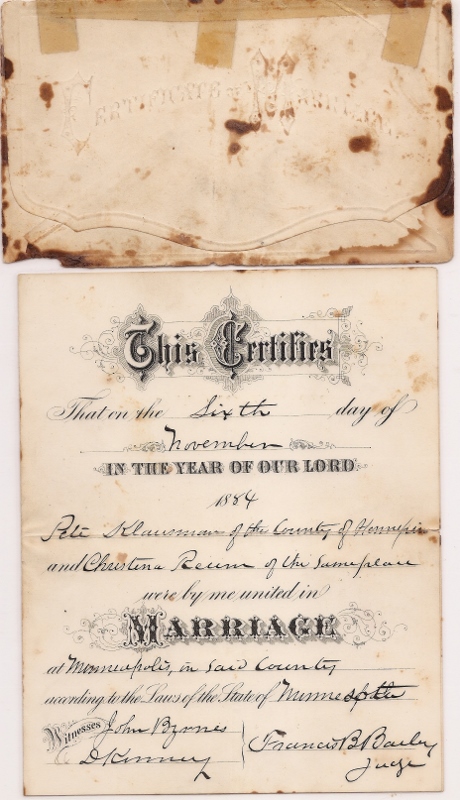 Certificate of Marriage
This Certifies
That on the Sixth day of
November
IN THE YEAR OF OUR LORD
1884
Pete Klausman of the County of Hennepin
and Christena Reum of the Same place
were by me united in
MARRIAGE
at Minneapolis, in Said County
according to the Laws of the State of Minnesota
Witnesses
John Byrnes
D Kinney
Francis B Bailey
Judge